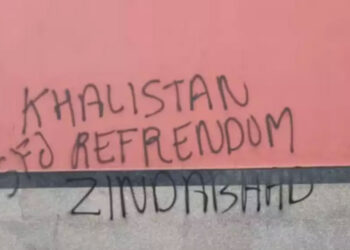 KHALISTAN
SFJ REFRENDOM
ZINDABHAD